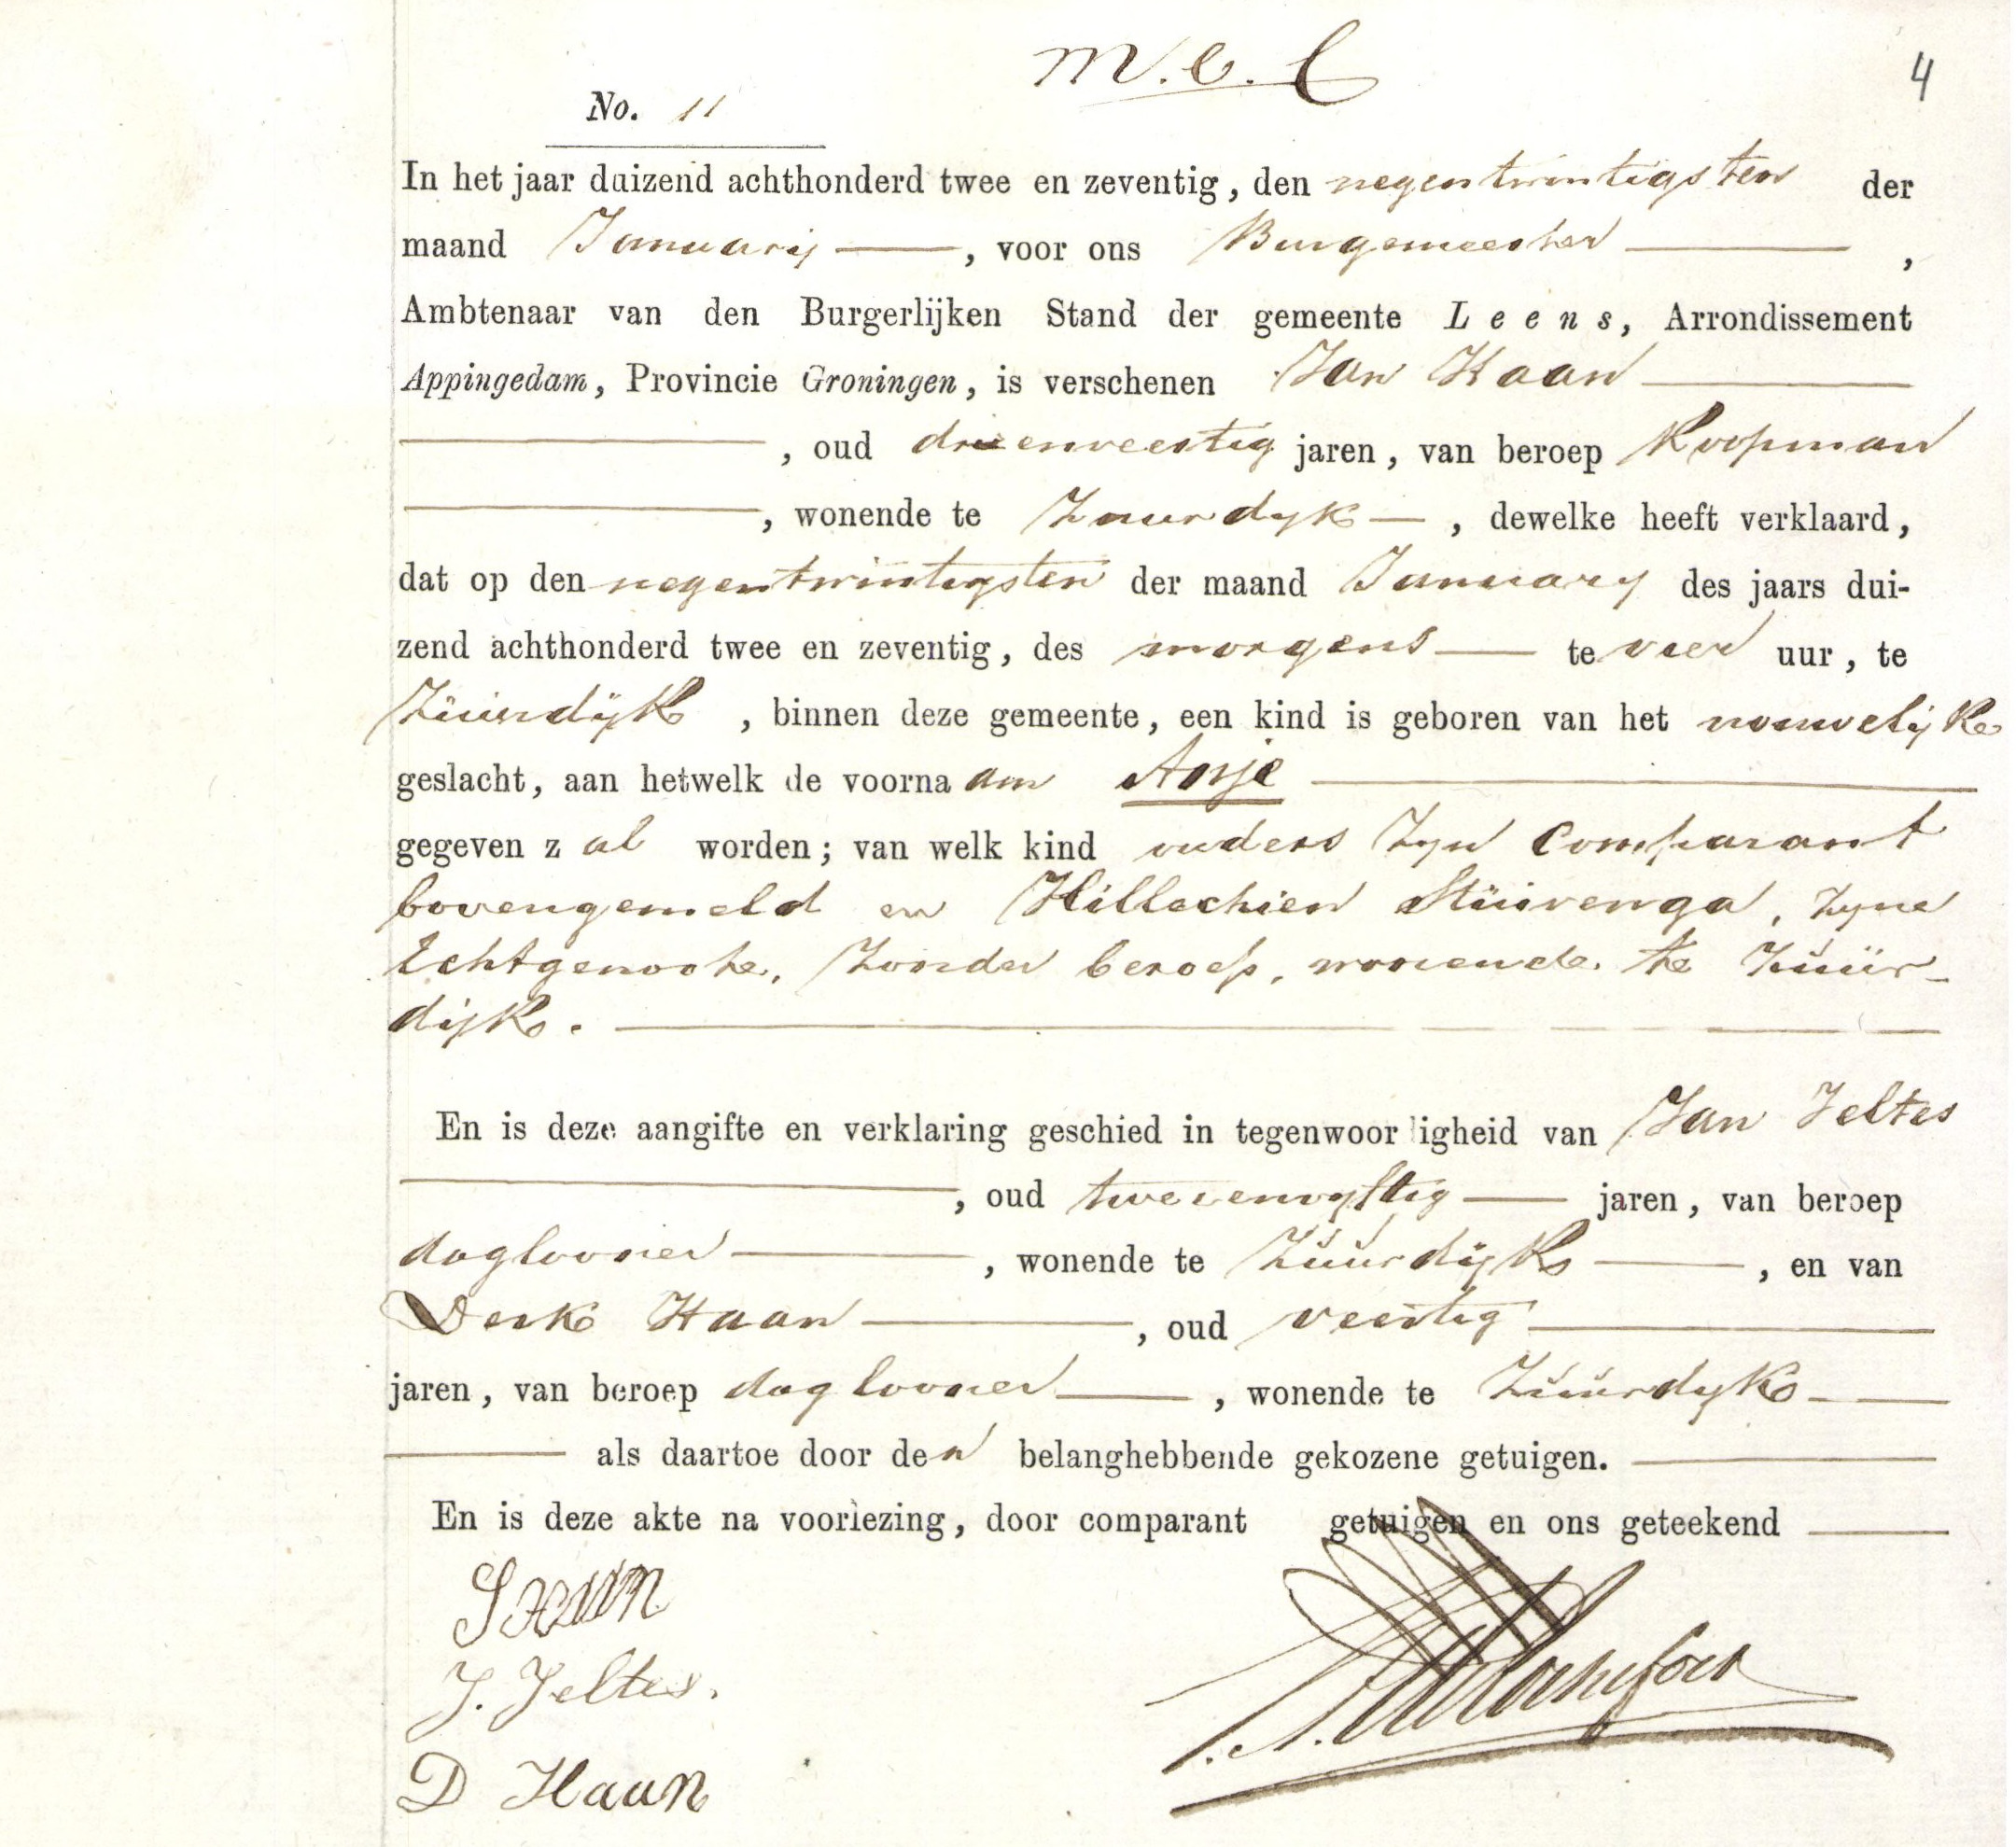 m.e.l
4
No. 11
In het jaar duizend achthonderd twee en zeventig, den negentwintigsten der
maand Januarij, voor ons Burgemeester,
Ambtenaar van den Burgerlijken Stand der gemeente Leens, Arrondissement
Appingedam, Provincie Groningen, is verschenen Jan Haan
, oud drieenveertig jaren, van beroep Koopman
, wonende te Zuurdyk, dewelke heeft verklaard,
dat op den negentwintigsten der maand January des jaars dui-
zend achthonderd twee en zeventig, des morgens te vier uur, te
Zuurdijk, binnen deze gemeente, een kind is geboren van het vrouwelijke
geslacht, aan hetwelk de voornaam Anje
gegeven zal worden; van welk kind ouders zyn Comparant
bovengemeld en Hillechien Stuivenga, zyne
Echtgenoote, zonder beroep, wonende te Zuur-
dijk.
En is deze aangifte en verklaring geschied in tegenwoordigheid van Jan Jeltes
, oud tweeenvyftig jaren, van beroep
daglooner, wonende te Zuurdijk, en van
Derk Haan, oud veertig
jaren, van beroep daglooner, wonende te Zuurdyk
als daartoe door den belanghebbende gekozene getuigen.
En is deze akte na voorlezing, door comparant getuigen en ons geteekend
J Haan
J. Jeltes.
D Haan